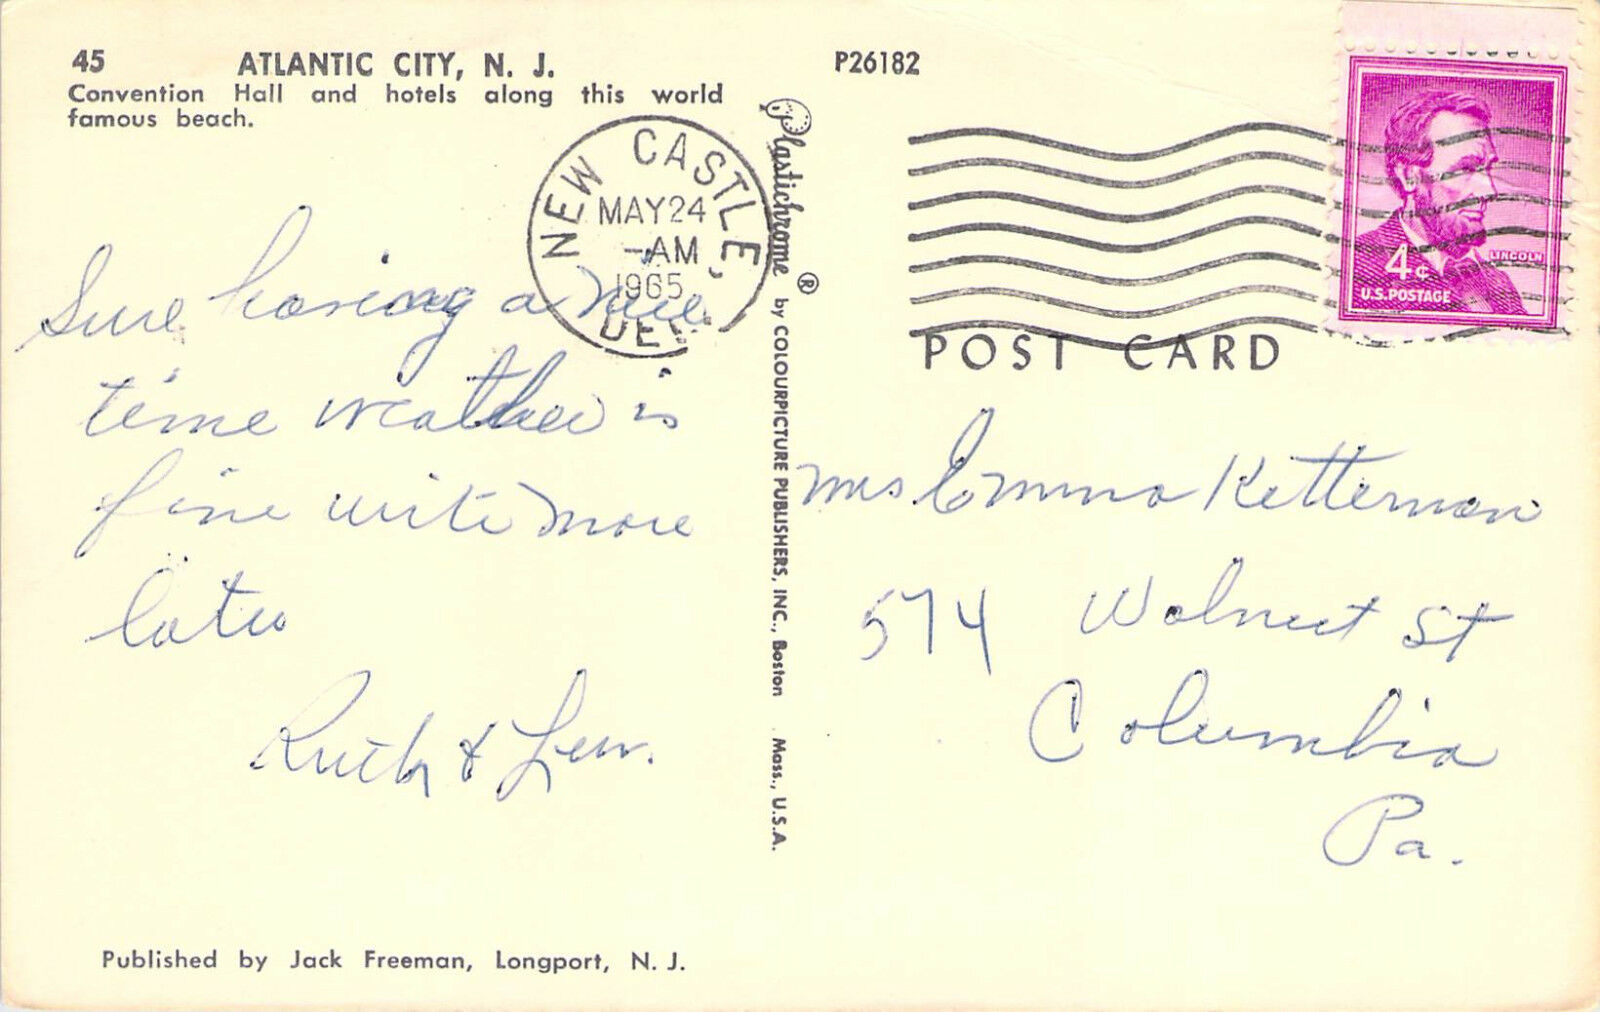 45 ATLANTIC CITY, N. J.
Convention Hall and hotels along this world
famous beach.
P26182
NEW CASTLE,
MAY 24
-AM
1965
DEL.
LINCOLN
4¢
U.S. POSTAGE
POST CARD
Plastichrome ® by COLOURPICTURE PUBLISHERS, INC., Boston Mass., U.S.A.
Sure having a nice
time weather is
fine write more
later
Ruth & Lew.
Mrs Emma Ketterman
574 Walnut St
Columbia
Pa.
Published by Jack Freeman, Longport, N. J.